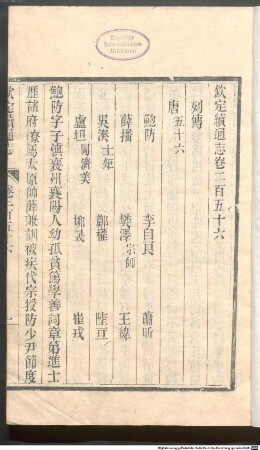 欽定續通志卷二百五十六
列傳
唐五十六
鮑防 李自良 蕭昕
薛播 樊澤宗師 王緯
吳湊士矩 鄭權 陸亘
盧坦閻濟美 柳晟 崔戎
鮑防字子慎襄州襄陽人幼孤貧篤學善詞章第進士
歷諸府僚屬太原節度薛兼訓被疾代宗授防少尹節度